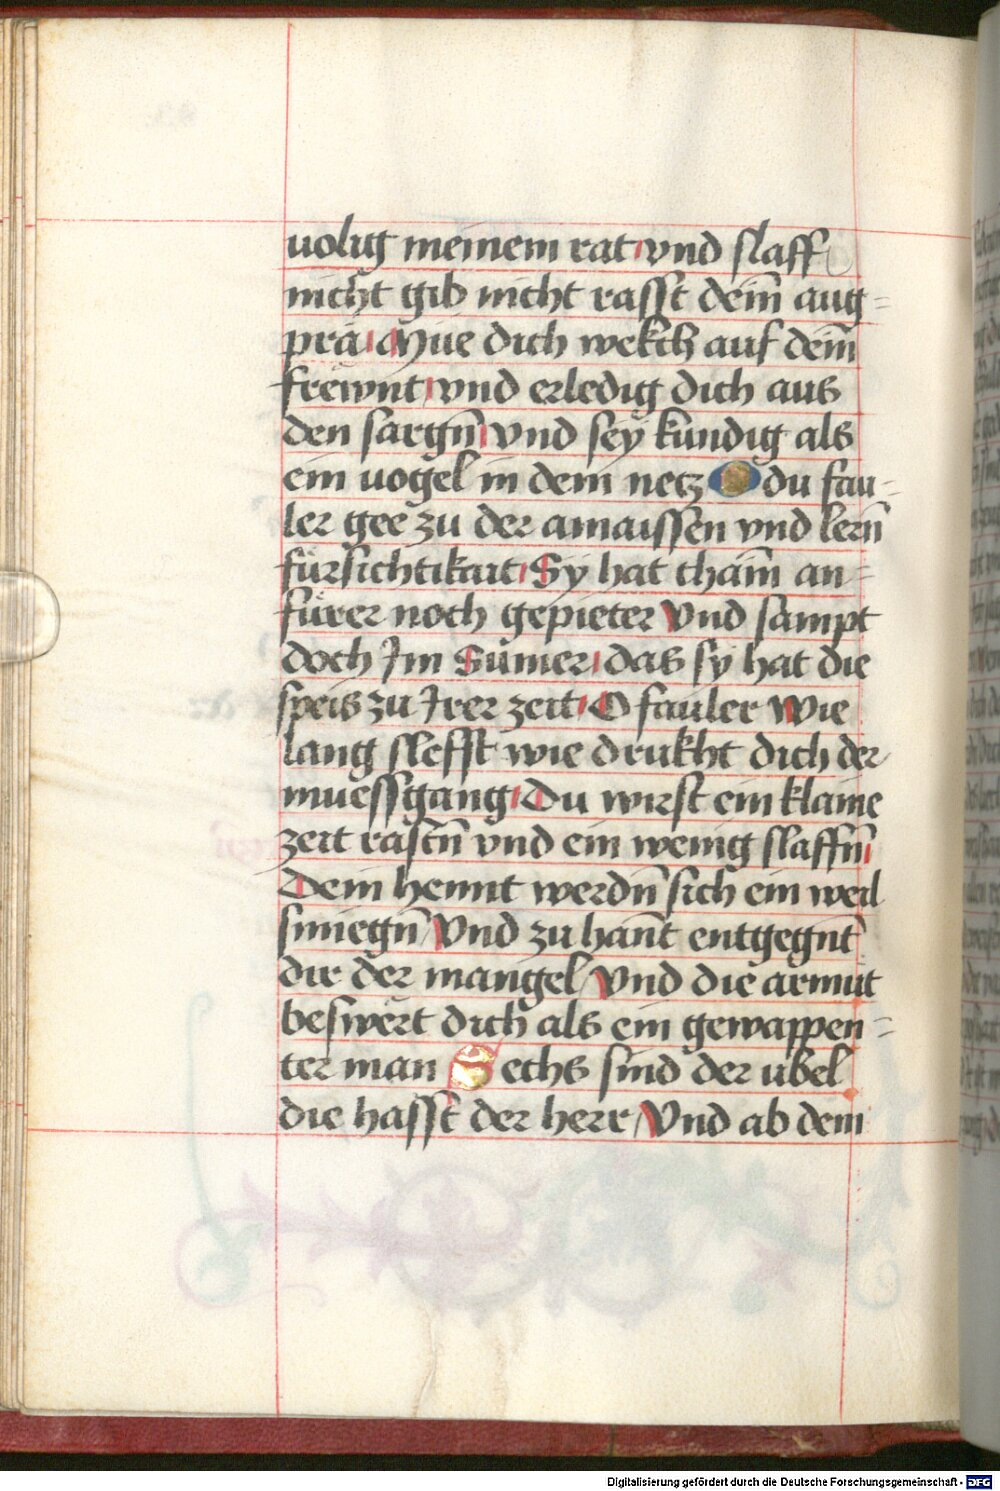 uolig meinem rat vnd slaff
nicht gib nicht rasst dein̄ aug=
pra Mue dich wekch auf dein̄
frewnt vnd erledig dich aus
den sargn̄ vnd sey kundig als
ein uogel in dem netz O du fau=
ler gee zu der amaissen vnd lern̄
fürsichtikait Sy hat chain̄ an=
fürer noch gepieter Vnd sampt
doch Im Sumer das sy hat die
speis zu Irer zeit O fauler Wie
lang slefft wie drukht dich der
muessgang Du wirst ein klaine
zeit rastn̄ vnd ein wenig slaffn̄
Dein hennt werdn̄ sich ein weil
smiegn̄ Vnd zu han̄t entgegnt
dir der mangel Vnd die armut
beswërt dich als ein gewappen=
ter man Sechs sind der ubel
die hasst der herr Vnd ab dem
Digitalisierung gefördert durch die Deutsche Forschungsgemeinschaft - DFG